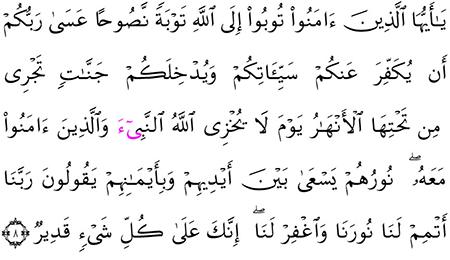 يَـٰٓأَيُّهَا ٱلَّذِينَ ءَامَنُوا۟ تُوبُوٓا۟ إِلَى ٱللَّهِ تَوْبَةً نَّصُوحًا عَسَىٰ رَبُّكُمْ
أَن يُكَفِّرَ عَنكُمْ سَيِّـَٔاتِكُمْ وَيُدْخِلَكُمْ جَنَّـٰتٍ تَجْرِى
مِن تَحْتِهَا ٱلْأَنْهَـٰرُ يَوْمَ لَا يُخْزِى ٱللَّهُ ٱلنَّبِىٓءَ وَٱلَّذِينَ ءَامَنُوا۟
مَعَهُۥ ۖ نُورُهُمْ يَسْعَىٰ بَيْنَ أَيْدِيهِمْ وَبِأَيْمَـٰنِهِمْ يَقُولُونَ رَبَّنَآ
أَتْمِمْ لَنَا نُورَنَا وَٱغْفِرْ لَنَآ ۖ إِنَّكَ عَلَىٰ كُلِّ شَىْءٍ قَدِيرٌ ٨